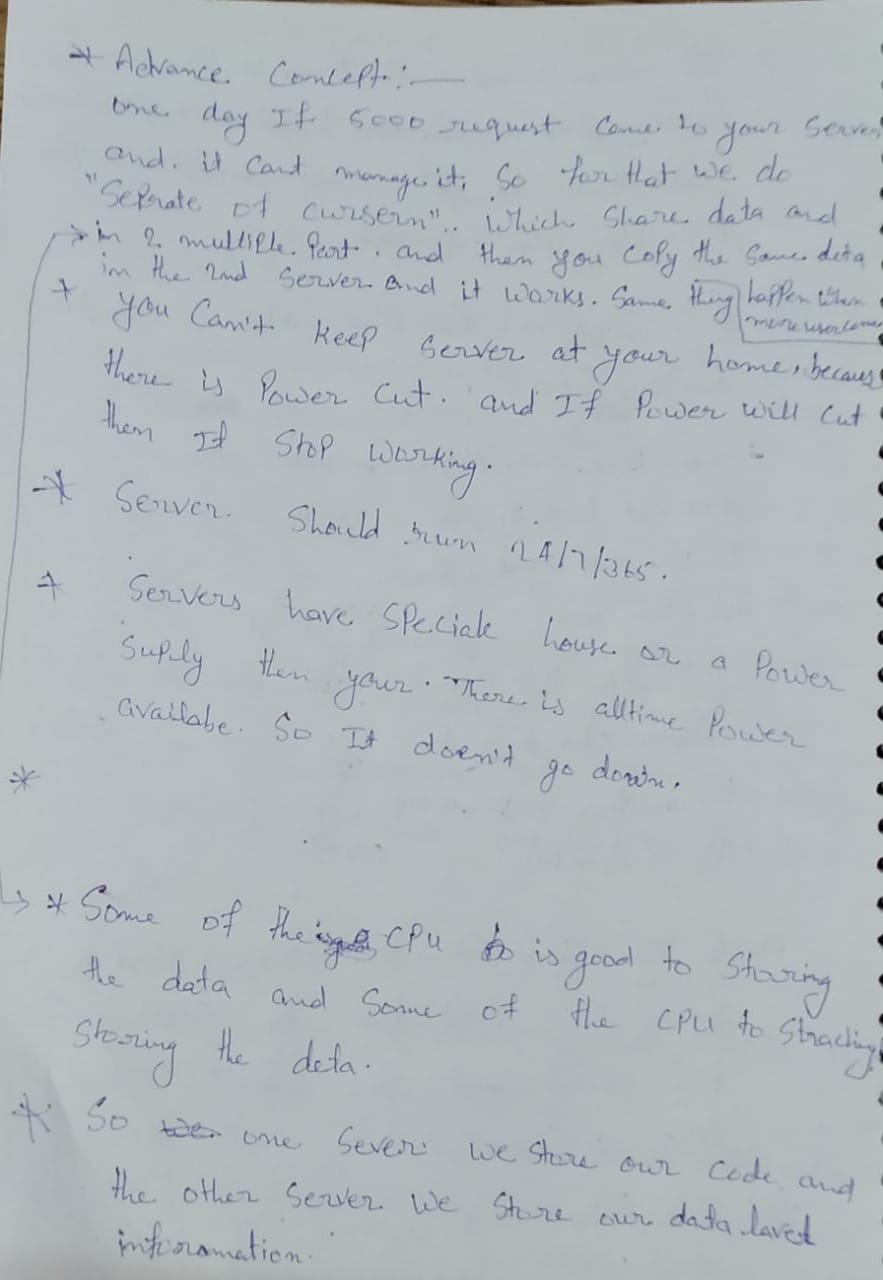 * Advance Concept :—
one day If 5000 request come to your Server
and. it cant manage it, So for that we do
"Seprate of cursern".. which Share data and
→ in 2 multiple Part. and then you copy the same data
in the 2nd Server and it works. Same thing happen when
more user come
* you Can't keep server at your home, because
there is Power cut. and If Power will cut
then It Stop working.
* Server Should run 24/7/365.
* Servers have Speciale house or a Power
Suplly then your. There is alltime Power
availabe. So It doen't go down.
*
→ * Some of the CPU is good to Sharing
the data and Some of the CPU to
Storing the data.
* So one Sever we store our code and
the other Server we Store our data
information.